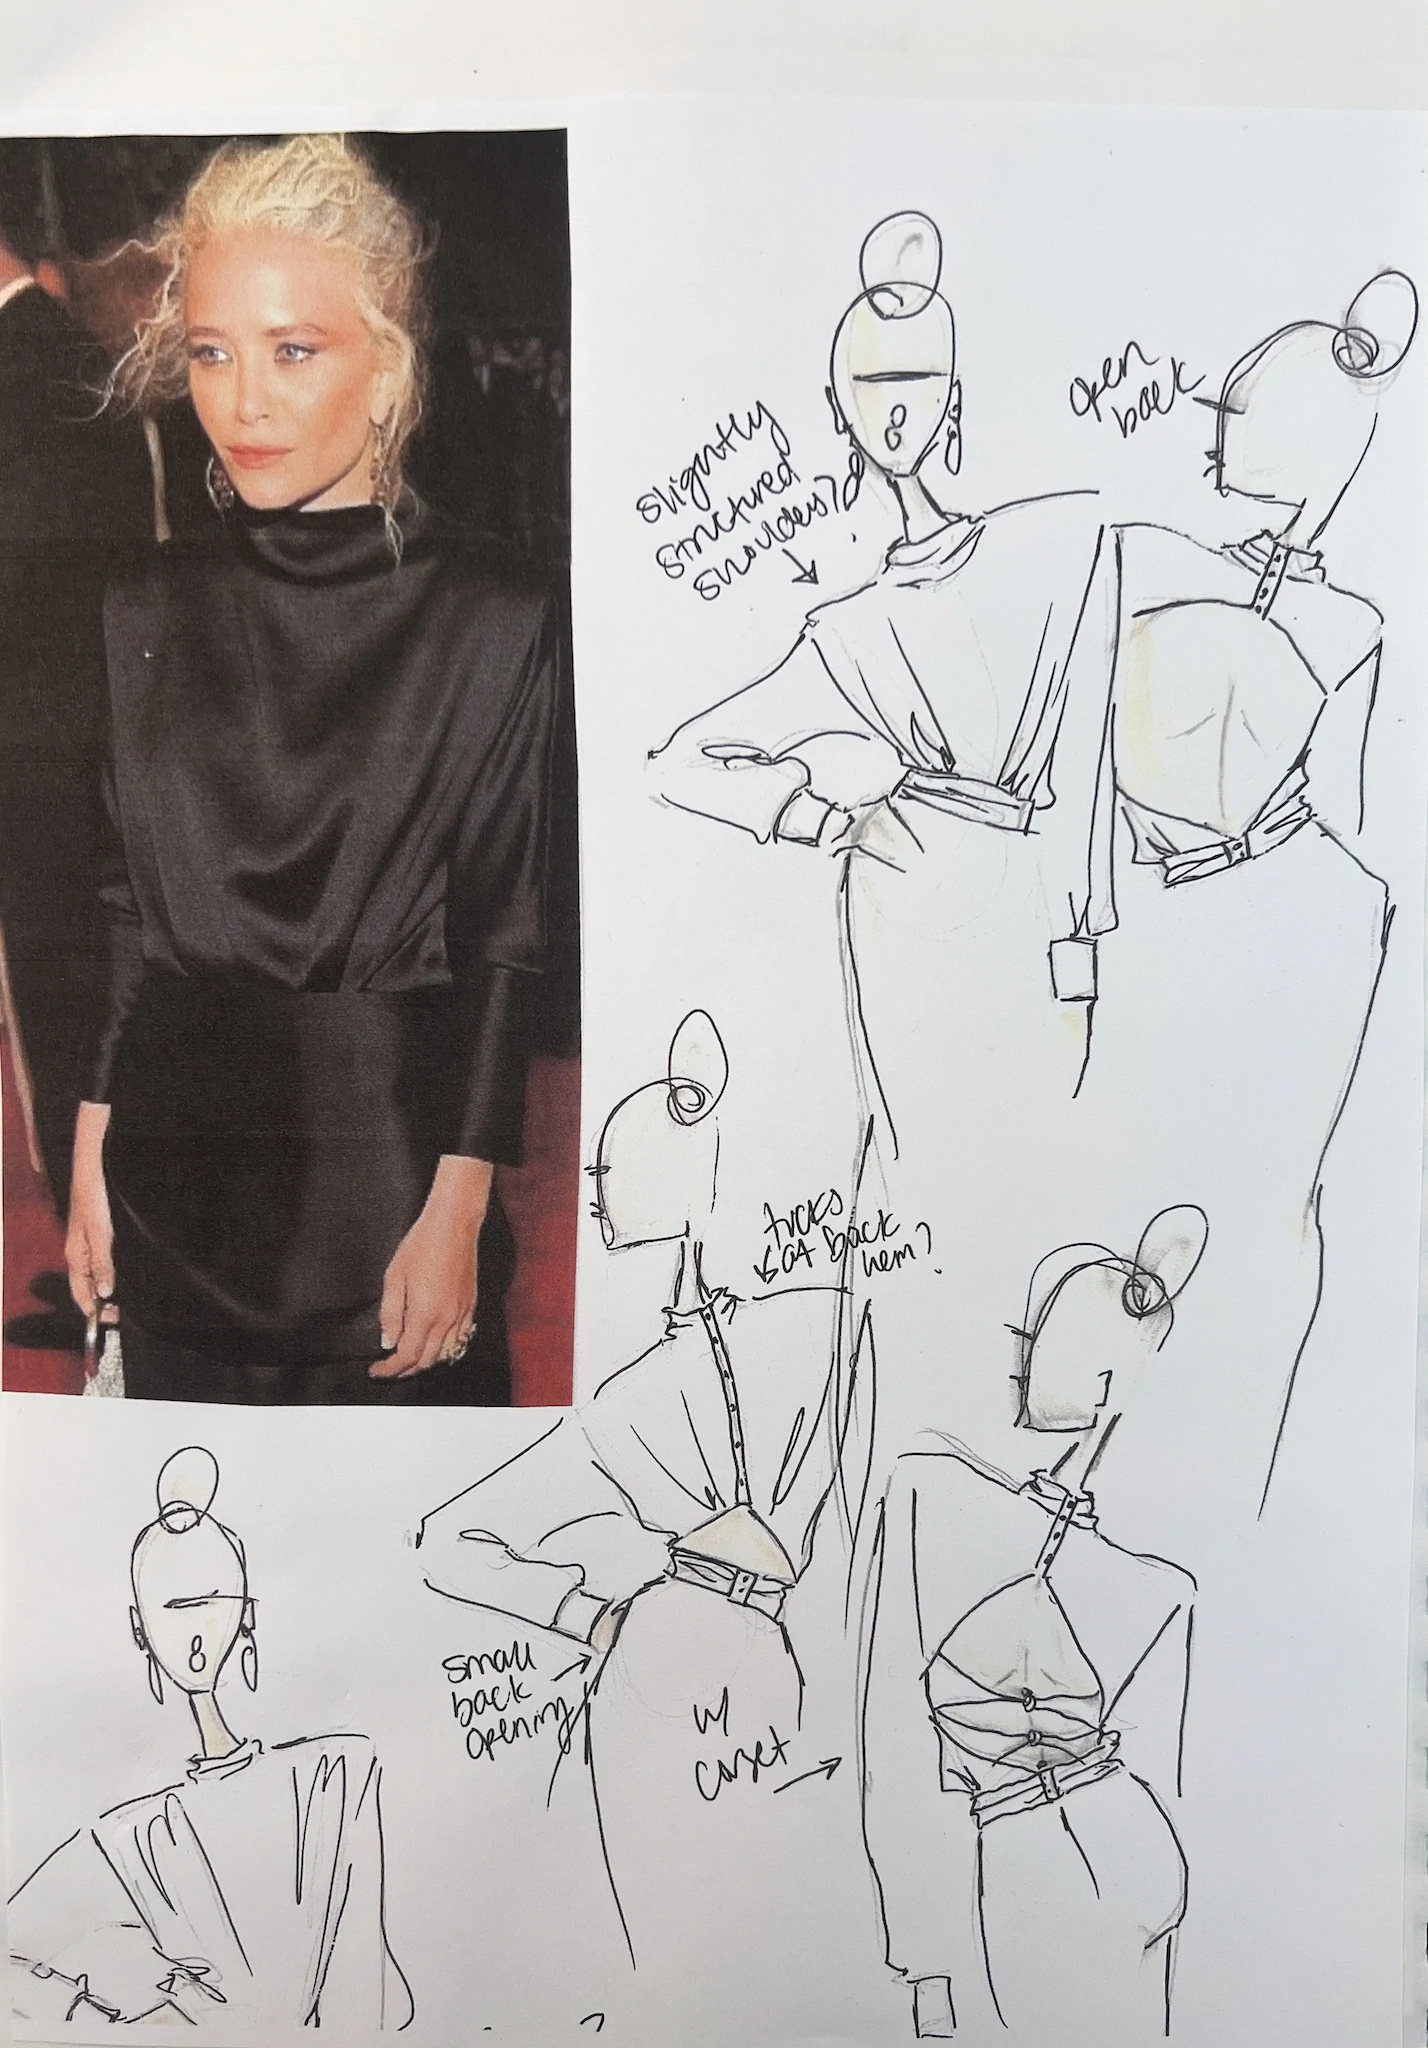 slightly
structured
shoulders?
open
back
tucks
at back
hem?
small
back
opening
w/
corset